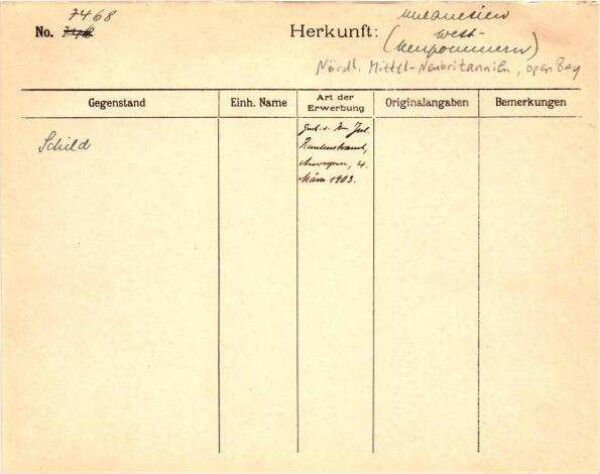 7468
No. Herkunft: Melanesien
(West-
Neupommern)
Nördl. Mittel-Neubritannien, Open Bay
Gegenstand Einh. Name Art der Erwerbung Originalangaben Bemerkungen
Schild
Jul.
Rautenstrauch,
4.
März 1903.